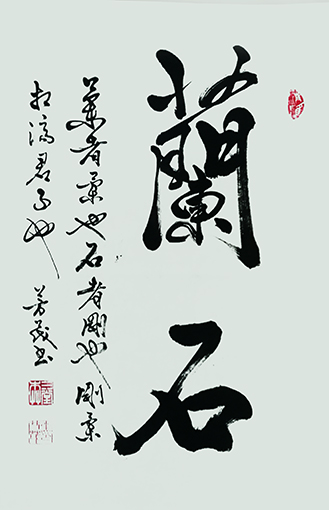 蘭石
蘭者柔也石者剛也剛柔
相濟君子也